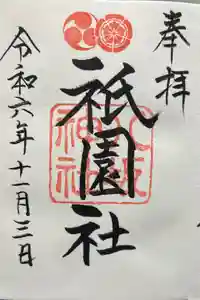 奉拝
祇園社
令和六年十一月三日